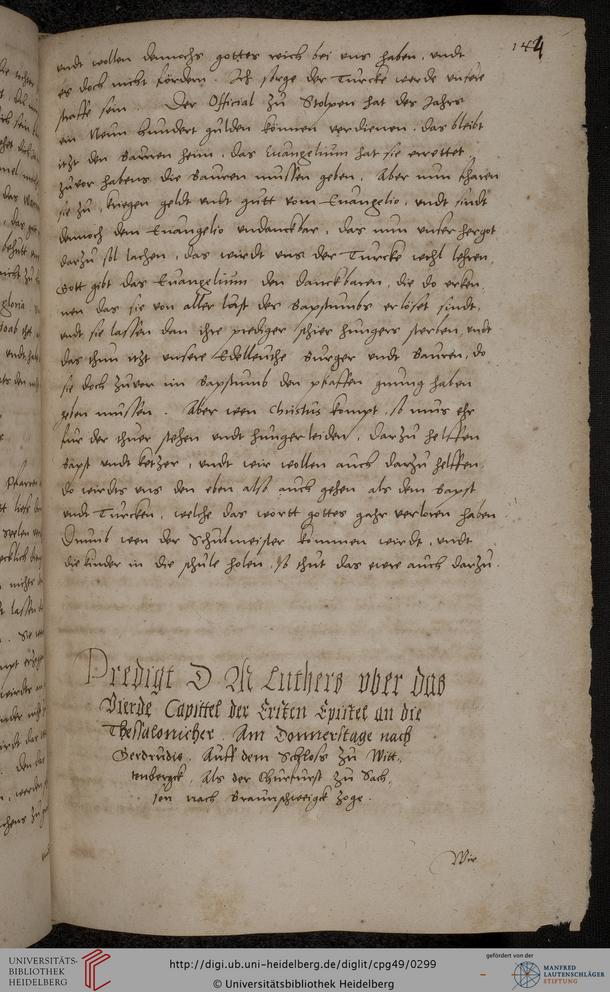 144
vndt wollen dennochs gottes reich bei vns haben, vndt
es doch nicht fördern. Ich sorge der Turcke werde vnsere
straffe sein. Der Official zu Stolpen hat des Jahrs
ein Neun hundert gulden können verdienen, das bleibt
itzt den Bauren heim, das Euangelium hat sie errettet
zuvor habens die Bauren müssen geben, Aber nun scharen
sie zu, kriegen geldt vndt gutt vom Euangelio, vndt sindt
dennoch dem Euangelio vndanckbar, das nun vnser hergot
darzu sol lachen, das wirdt vns der Turcke wohl lehren,
Gott gibt das Euangelium den danckbaren, die do erken,
nen das sie von aller last des Bapstumbs erlöset sindt,
vndt sie lassen dan ihre prediger schier hungers sterben, vndt
das thun itzt vnsere Edelleuthe Burger vndt Bauren, do
sie doch zuvor im Bapstumb den pfaffen gnung haben
geben müssen. Aber wen Christus kompt, so mus ehr
fur der thuer stehen vndt hunger leiden, darzu helffen
Bapst vndt ketzer, vndt wir wollen auch darzu helffen,
do wirdts vns den eben also auch gehen als dem Bapst
vndt Turcken, welche das wortt gottes gahr verloren haben
Dumb wen der Schulmeister kommen wirdt, vndt
die kinder in die schule holen, so thut das ewre auch darzu.
Predigt D M Luthers vber das
Vierde Capittel der Ersten Epistel an die
Thessalonicher, Am Donnerstage nach
Gerdrudis, Auff dem Schloss zu Witt,
tenbergck, Als der Churfurst zu Sach,
sen nach Braunschweigck zoge.
Wir
UNIVERSITÄTS-
BIBLIOTHEK
HEIDELBERG
http://digi.ub.uni-heidelberg.de/diglit/cpg49/0299
© Universitätsbibliothek Heidelberg
gefördert von der
MANFRED
LAUTENSCHLÄGER
STIFTUNG